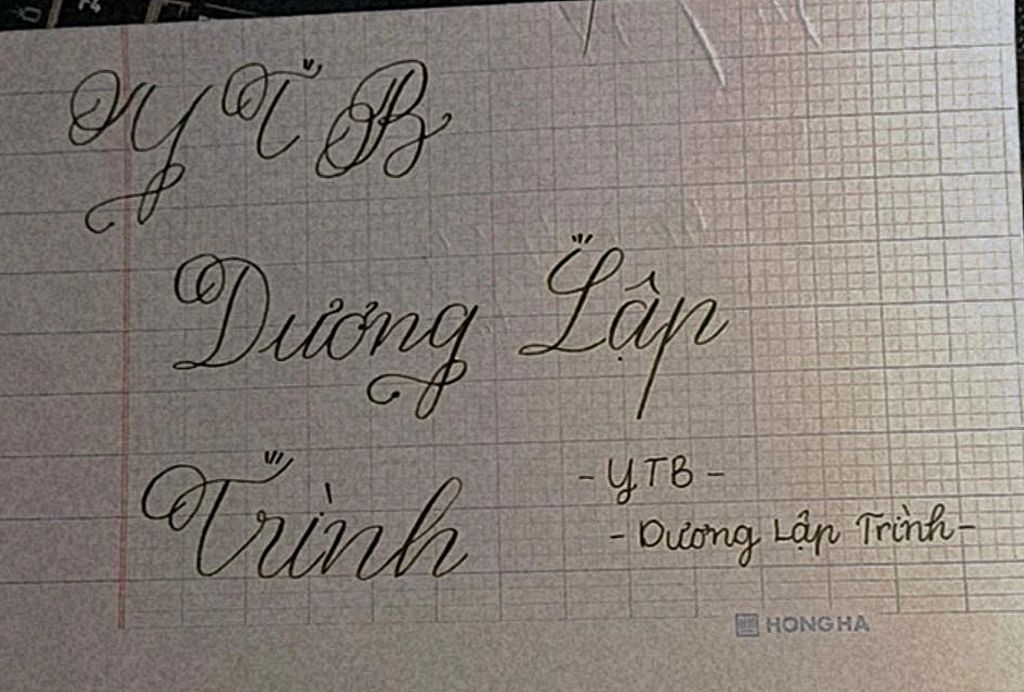 YTB
Dương Lập
Trình
- YTB -
- Dương Lập Trình -
HONG HA